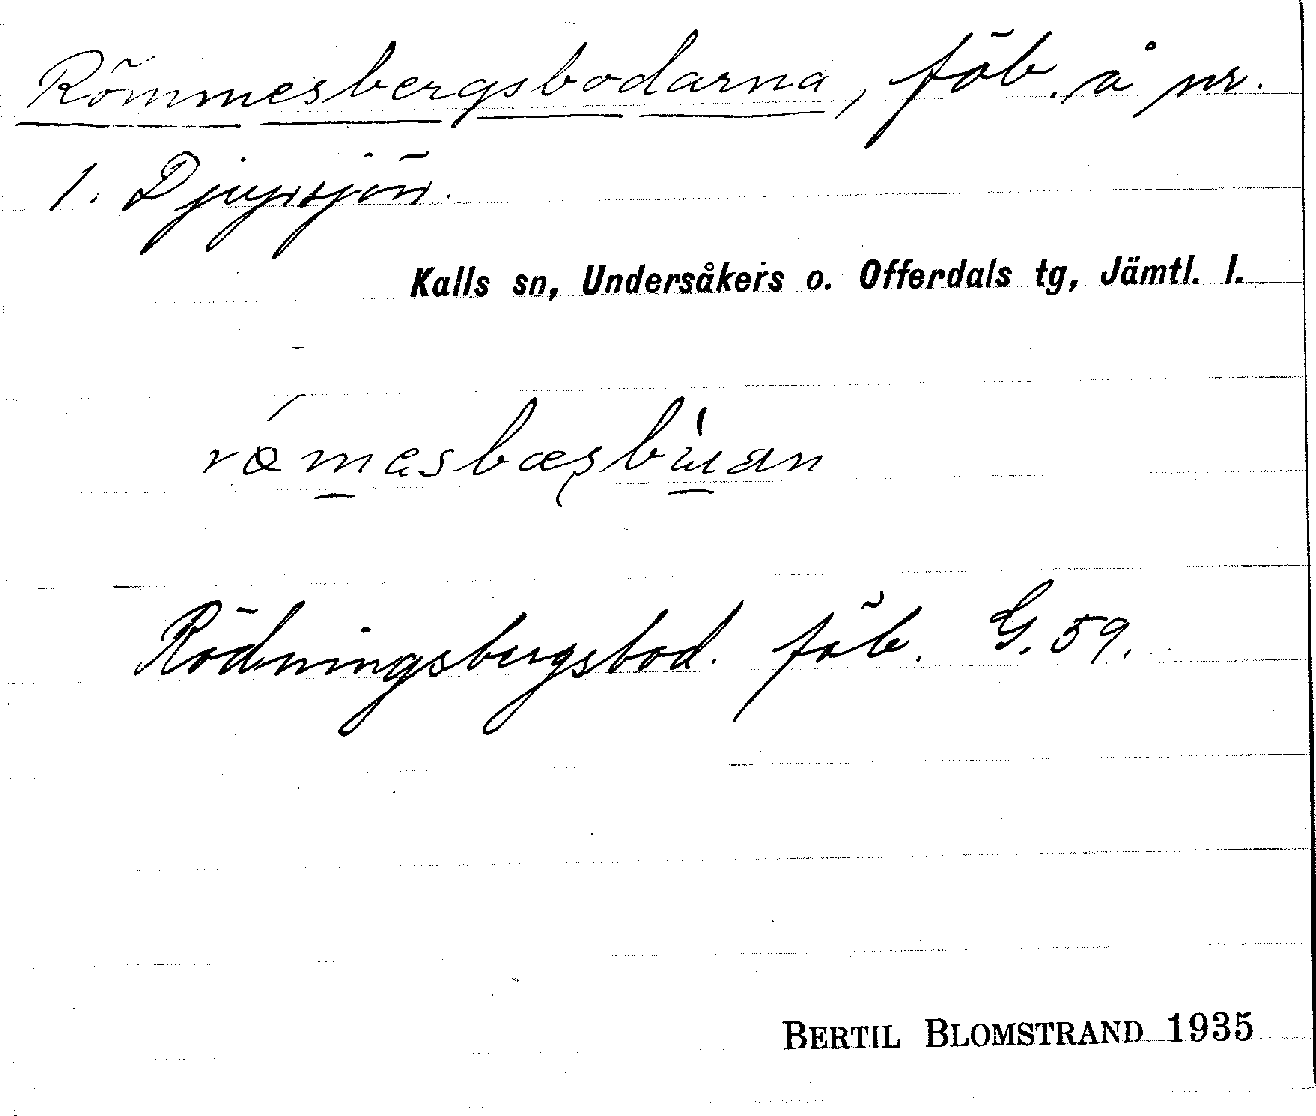 Römmesbergsbodarna, föb. å nr.
1. Djupsjön.
Kalls sn, Undersåkers o. Offerdals tg, Jämtl. l.
Rödningsbergsbod. föb. G. 59.
BERTIL BLOMSTRAND 1935